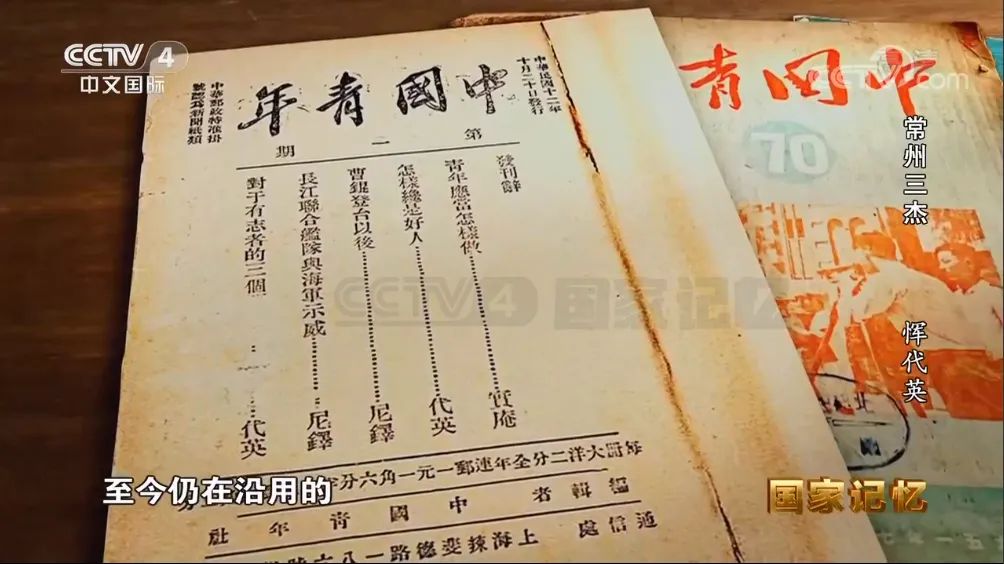 CCTV 4
中文国际
中華民國十二年
十月二十日發行
中國青年
中華郵政特准掛
號認爲新聞紙類
第一期
發刊辭
青年應當怎樣做……實庵
怎樣纔是好人……代英
曹錕登台以後……尼鐸
長江聯合艦隊與海軍示威……尼鐸
對于有志者的三個……代英
每册大洋二分全年連郵一元一角六分
編輯者 中國青年社
通信處 上海辣斐德路一八六號
中国青
70
CCTV 4 国家记忆
常州三杰
恽代英
至今仍在沿用的
国家记忆